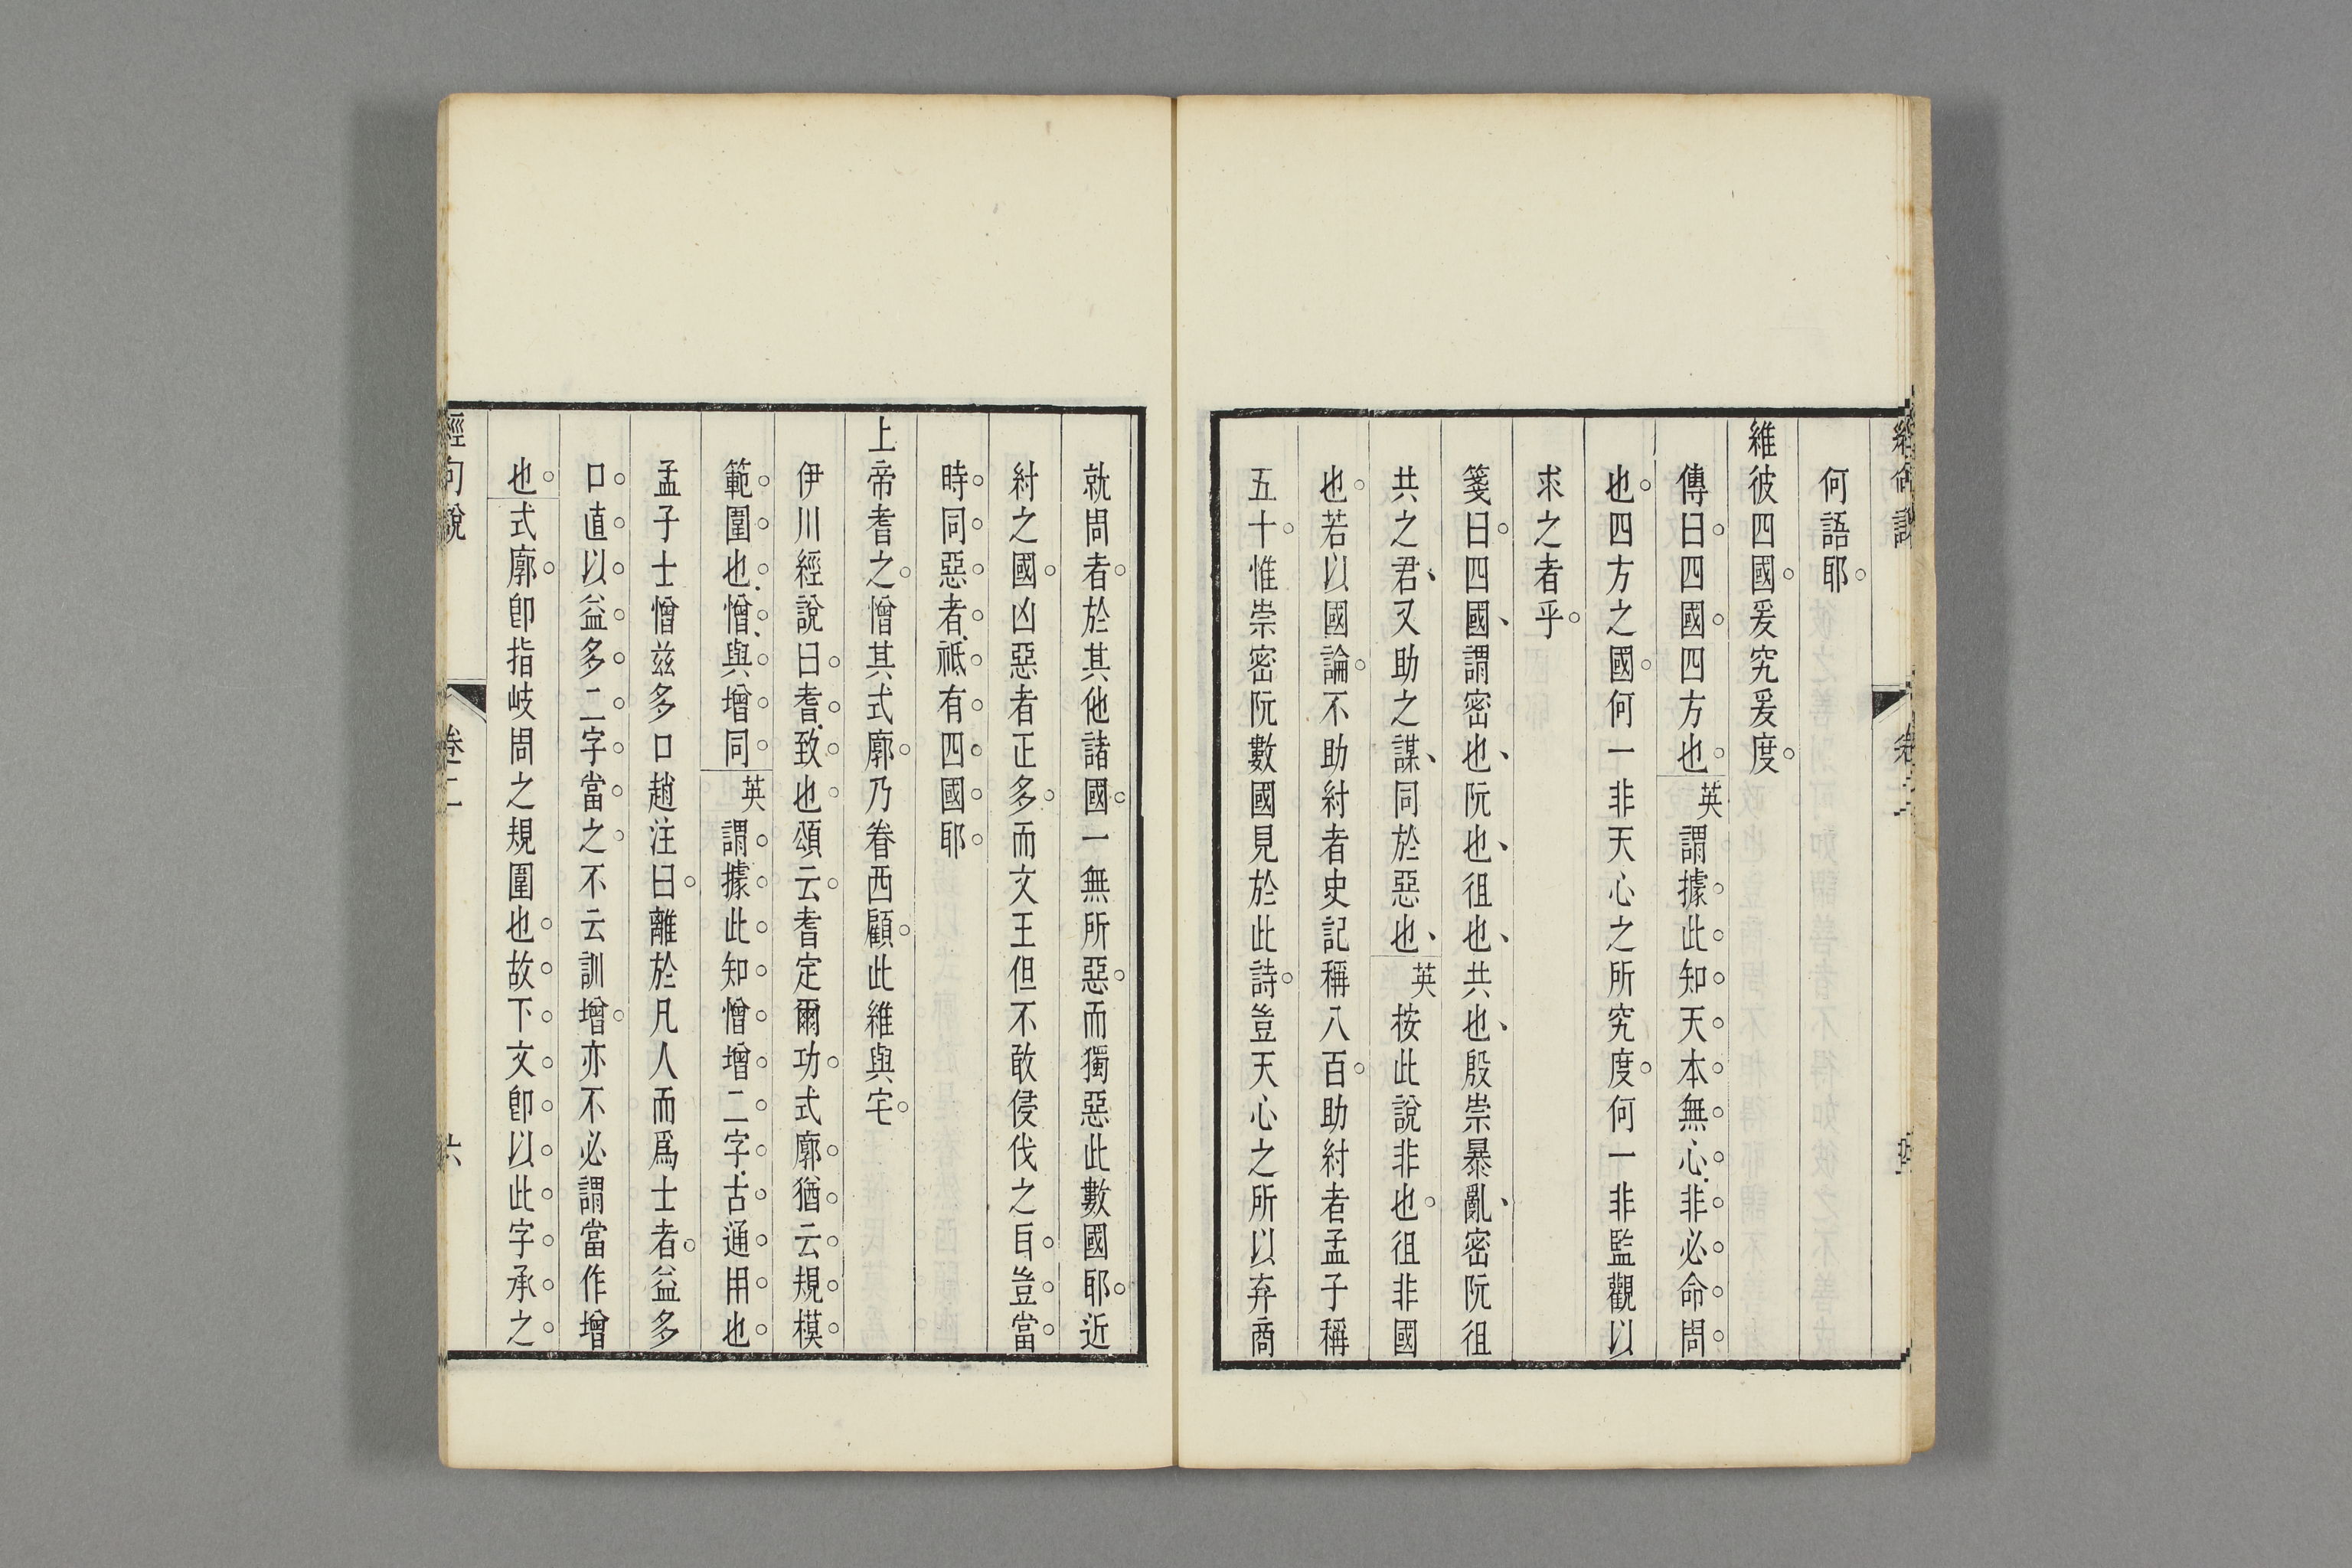 何語耶
維彼四國爰究爰度
傳曰四國四方也英謂據此知天本無心非必命周
也四方之國何一非天心之所究度何一非監觀以
求之者乎
箋曰四國謂密也阮也徂也共也殷崇暴亂密阮徂
共之君又助之謀同於惡也英按此說非也徂非國
也若以國論不助紂者史記稱八百助紂者孟子稱
五十惟崇密阮數國見於此詩豈天心之所以弃商
就周者於其他諸國一無所惡而獨惡此數國耶近
紂之國凶惡者正多而文王但不敢侵伐之自豈當
時同惡者祗有四國耶
上帝耆之憎其式廓乃眷西顧此維與宅
伊川經說曰耆致也頌云耆定爾功式廓猶云規模
範圍也憎與增同英謂據此知憎增二字古通用也
孟子士憎茲多口趙注曰離於凡人而爲士者益多
口直以益多二字當之不云訓增亦不必謂當作增
也式廓卽指岐周之規圍也故下文卽以此字承之
經句說 卷二 六